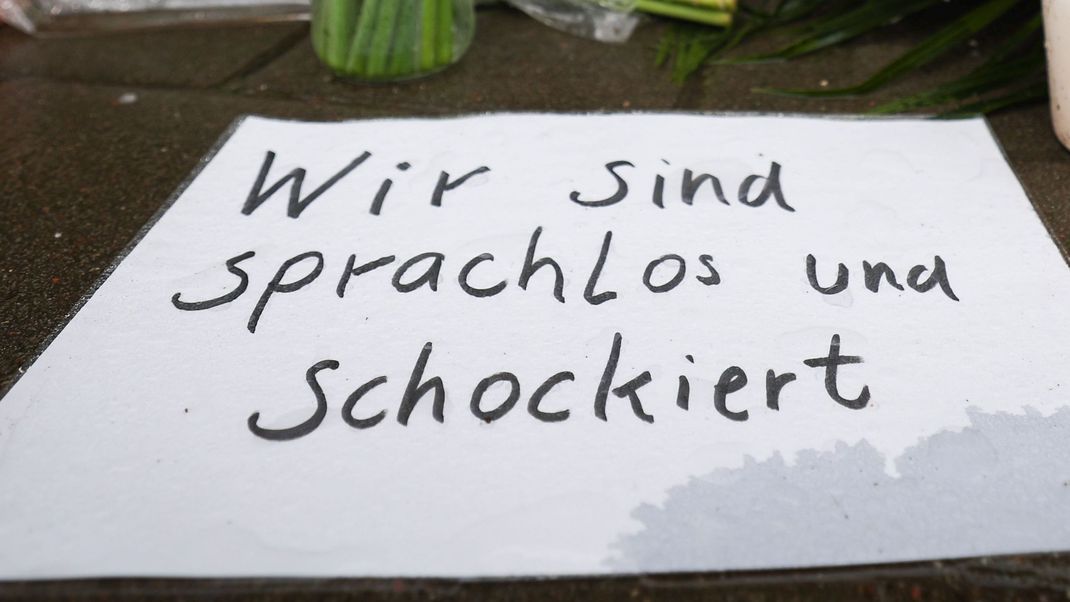 Wir sind
sprachlos und
schockiert